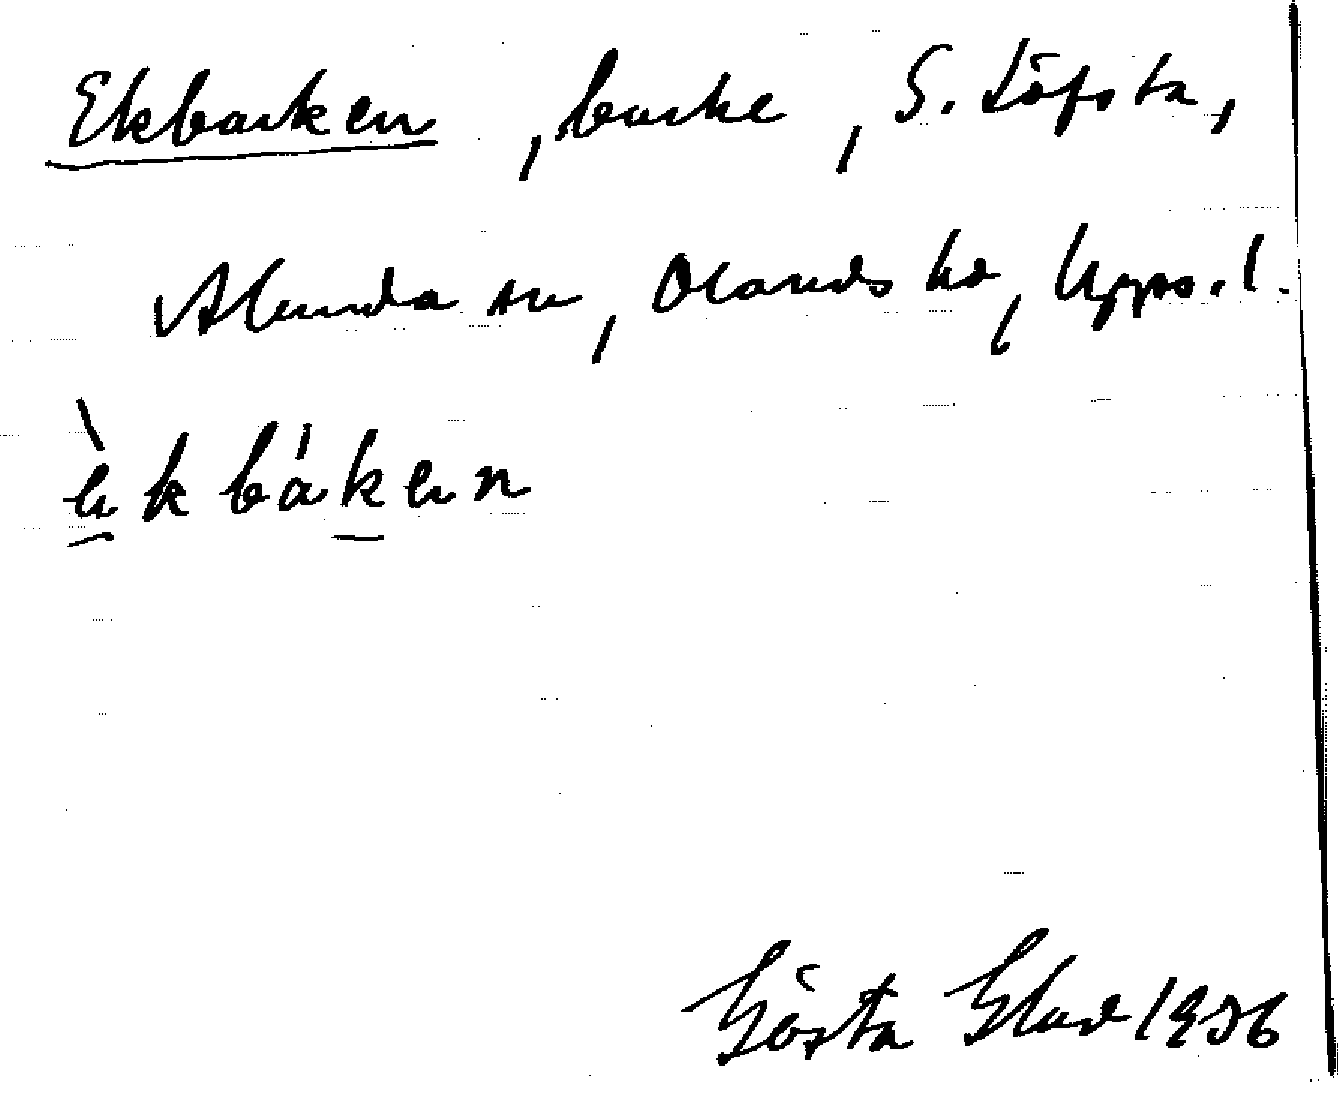 Ekbacken, backe, S. Löfsta,
Alunda sn, Olands hd, Upps. l.
èkbáken
Gösta Glad 1936